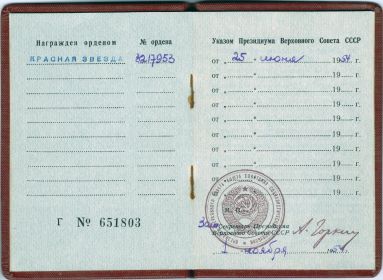 Награжден орденом
№ ордена
КРАСНАЯ ЗВЕЗДА
3217953
Г № 651803
Указом Президиума Верховного Совета СССР
от „ 25 " июня 1954 г.
от „ " 19 г.
от „ " 19 г.
от „ " 19 г.
от „ " 19 г.
от „ " 19 г.
от „ " 19 г.
от „ " 19 г.
от „ " 19 г.
М. П.
Зам. Секретарь Президиума
Верховного Совета СССР
ноября 1954 г.